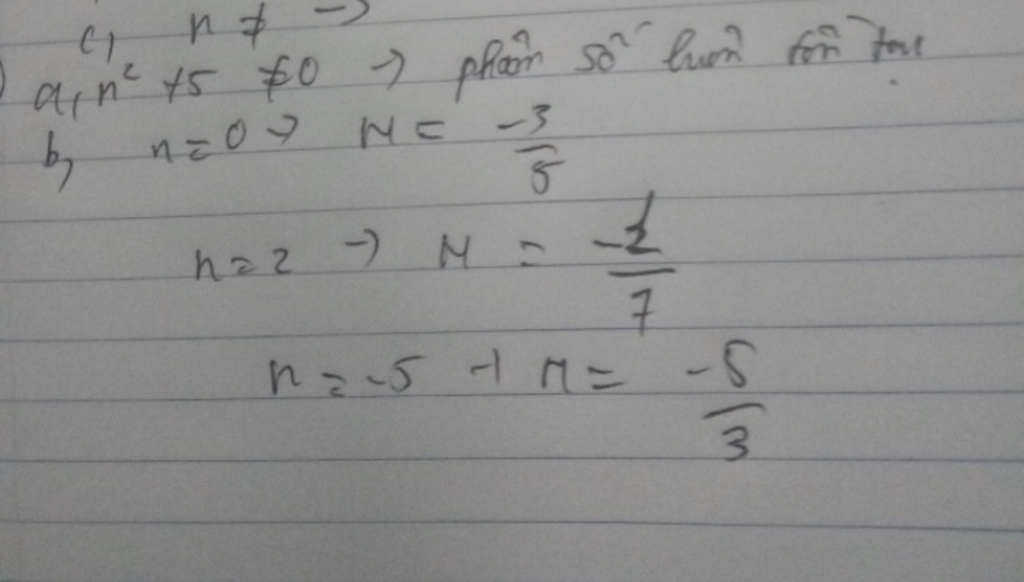 c, n ≠ →
a, n² + 5 ≠ 0 → phân số luôn tồn tại
b, n = 0 → M = -3/5
n = 2 → M = -1/7
n = -5 → M = -5/3